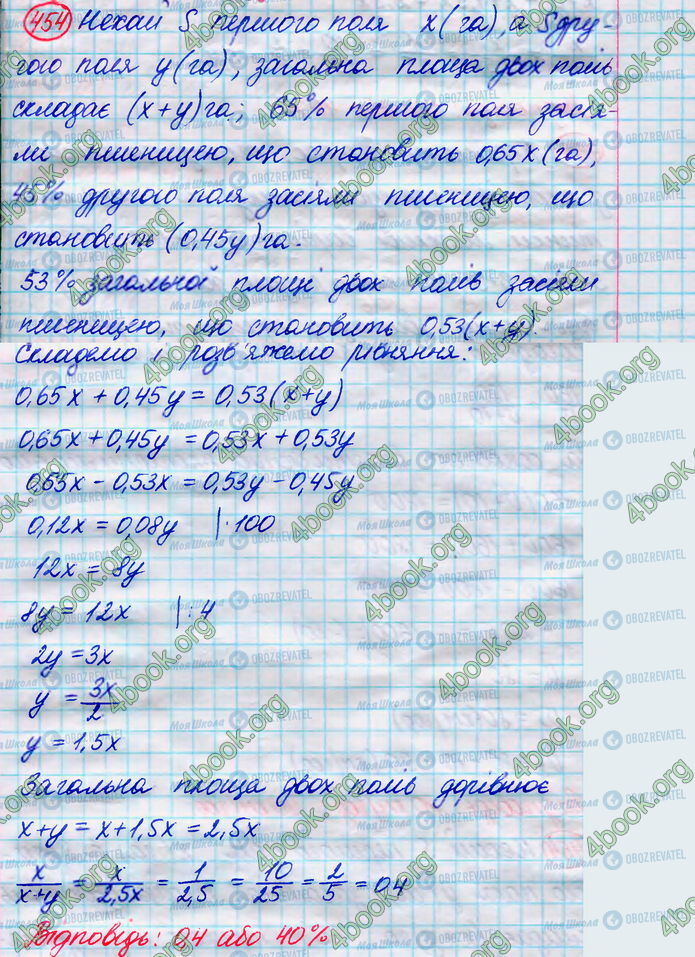 454 Нехай S першого поля x(га), а S дру-
гого поля y(га), загальна площа двох полів
складає (x+y)га; 65% першого поля засія-
ли пшеницею, що становить 0,65x(га),
45% другого поля засіяли пшеницею, що
становить (0,45y)га.
53% загальної площі двох полів засіяли
пшеницею, що становить 0,53(x+y).
Складемо і розв'яжемо рівняння:
0,65x + 0,45y = 0,53(x+y)
0,65x + 0,45y = 0,53x + 0,53y
0,65x - 0,53x = 0,53y - 0,45y
0,12x = 0,08y |·100
12x = 8y
8y = 12x |:4
2y = 3x
y = 3x/2
y = 1,5x
Загальна площа двох полів дорівнює
x+y = x+1,5x = 2,5x
x/(x+y) = x/2,5x = 1/2,5 = 10/25 = 2/5 = 0,4
Відповідь: 0,4 або 40%
4book.org
Моя Школа
OBOZREVATEL